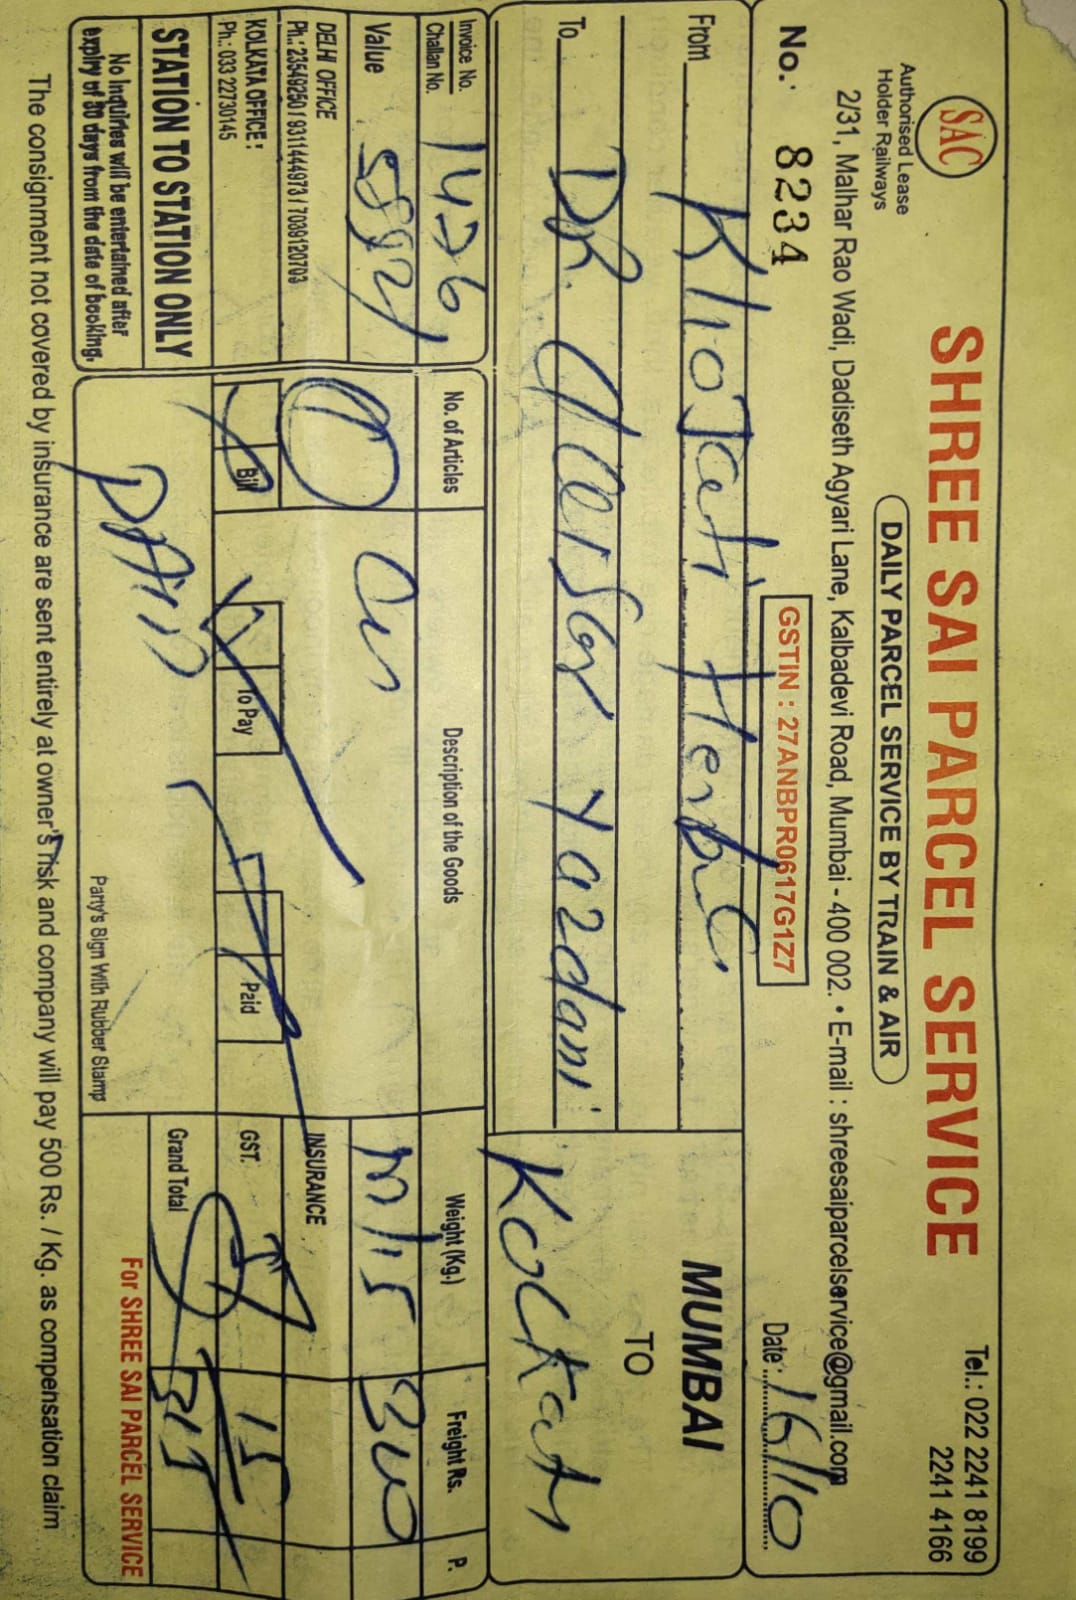 SAC
Authorised Lease
Holder Railways
Tel.: 022 2241 8199
2241 4166
SHREE SAI PARCEL SERVICE
DAILY PARCEL SERVICE BY TRAIN & AIR
2/31, Malhar Rao Wadi, Dadiseth Agyari Lane, Kalbadevi Road, Mumbai - 400 002. • E-mail : shreesaiparcelservice@gmail.com
No. 8234
GSTIN : 27ANBPR0617G1Z7
Date : 16/10
From
MUMBAI
TO
To DR. Yazdani
Invoice No.
Challan No.
1426
No. of Articles
Description of the Goods
Weight (Kg.)
Freight Rs.
P.
Value
m/15
300
DELHI OFFICE
Ph.: 23549250 / 9311444973 / 7089120703
INSURANCE
KOLKATA OFFICE :
Ph.: 033 22730145
Bill
To Pay
Paid
GST.
15
STATION TO STATION ONLY
PAID
Grand Total
315
No Inquiries will be entertained after
expiry of 30 days from the date of booking.
Party's Sign With Rubber Stamp
For SHREE SAI PARCEL SERVICE
The consignment not covered by insurance are sent entirely at owner's risk and company will pay 500 Rs. / Kg. as compensation claim